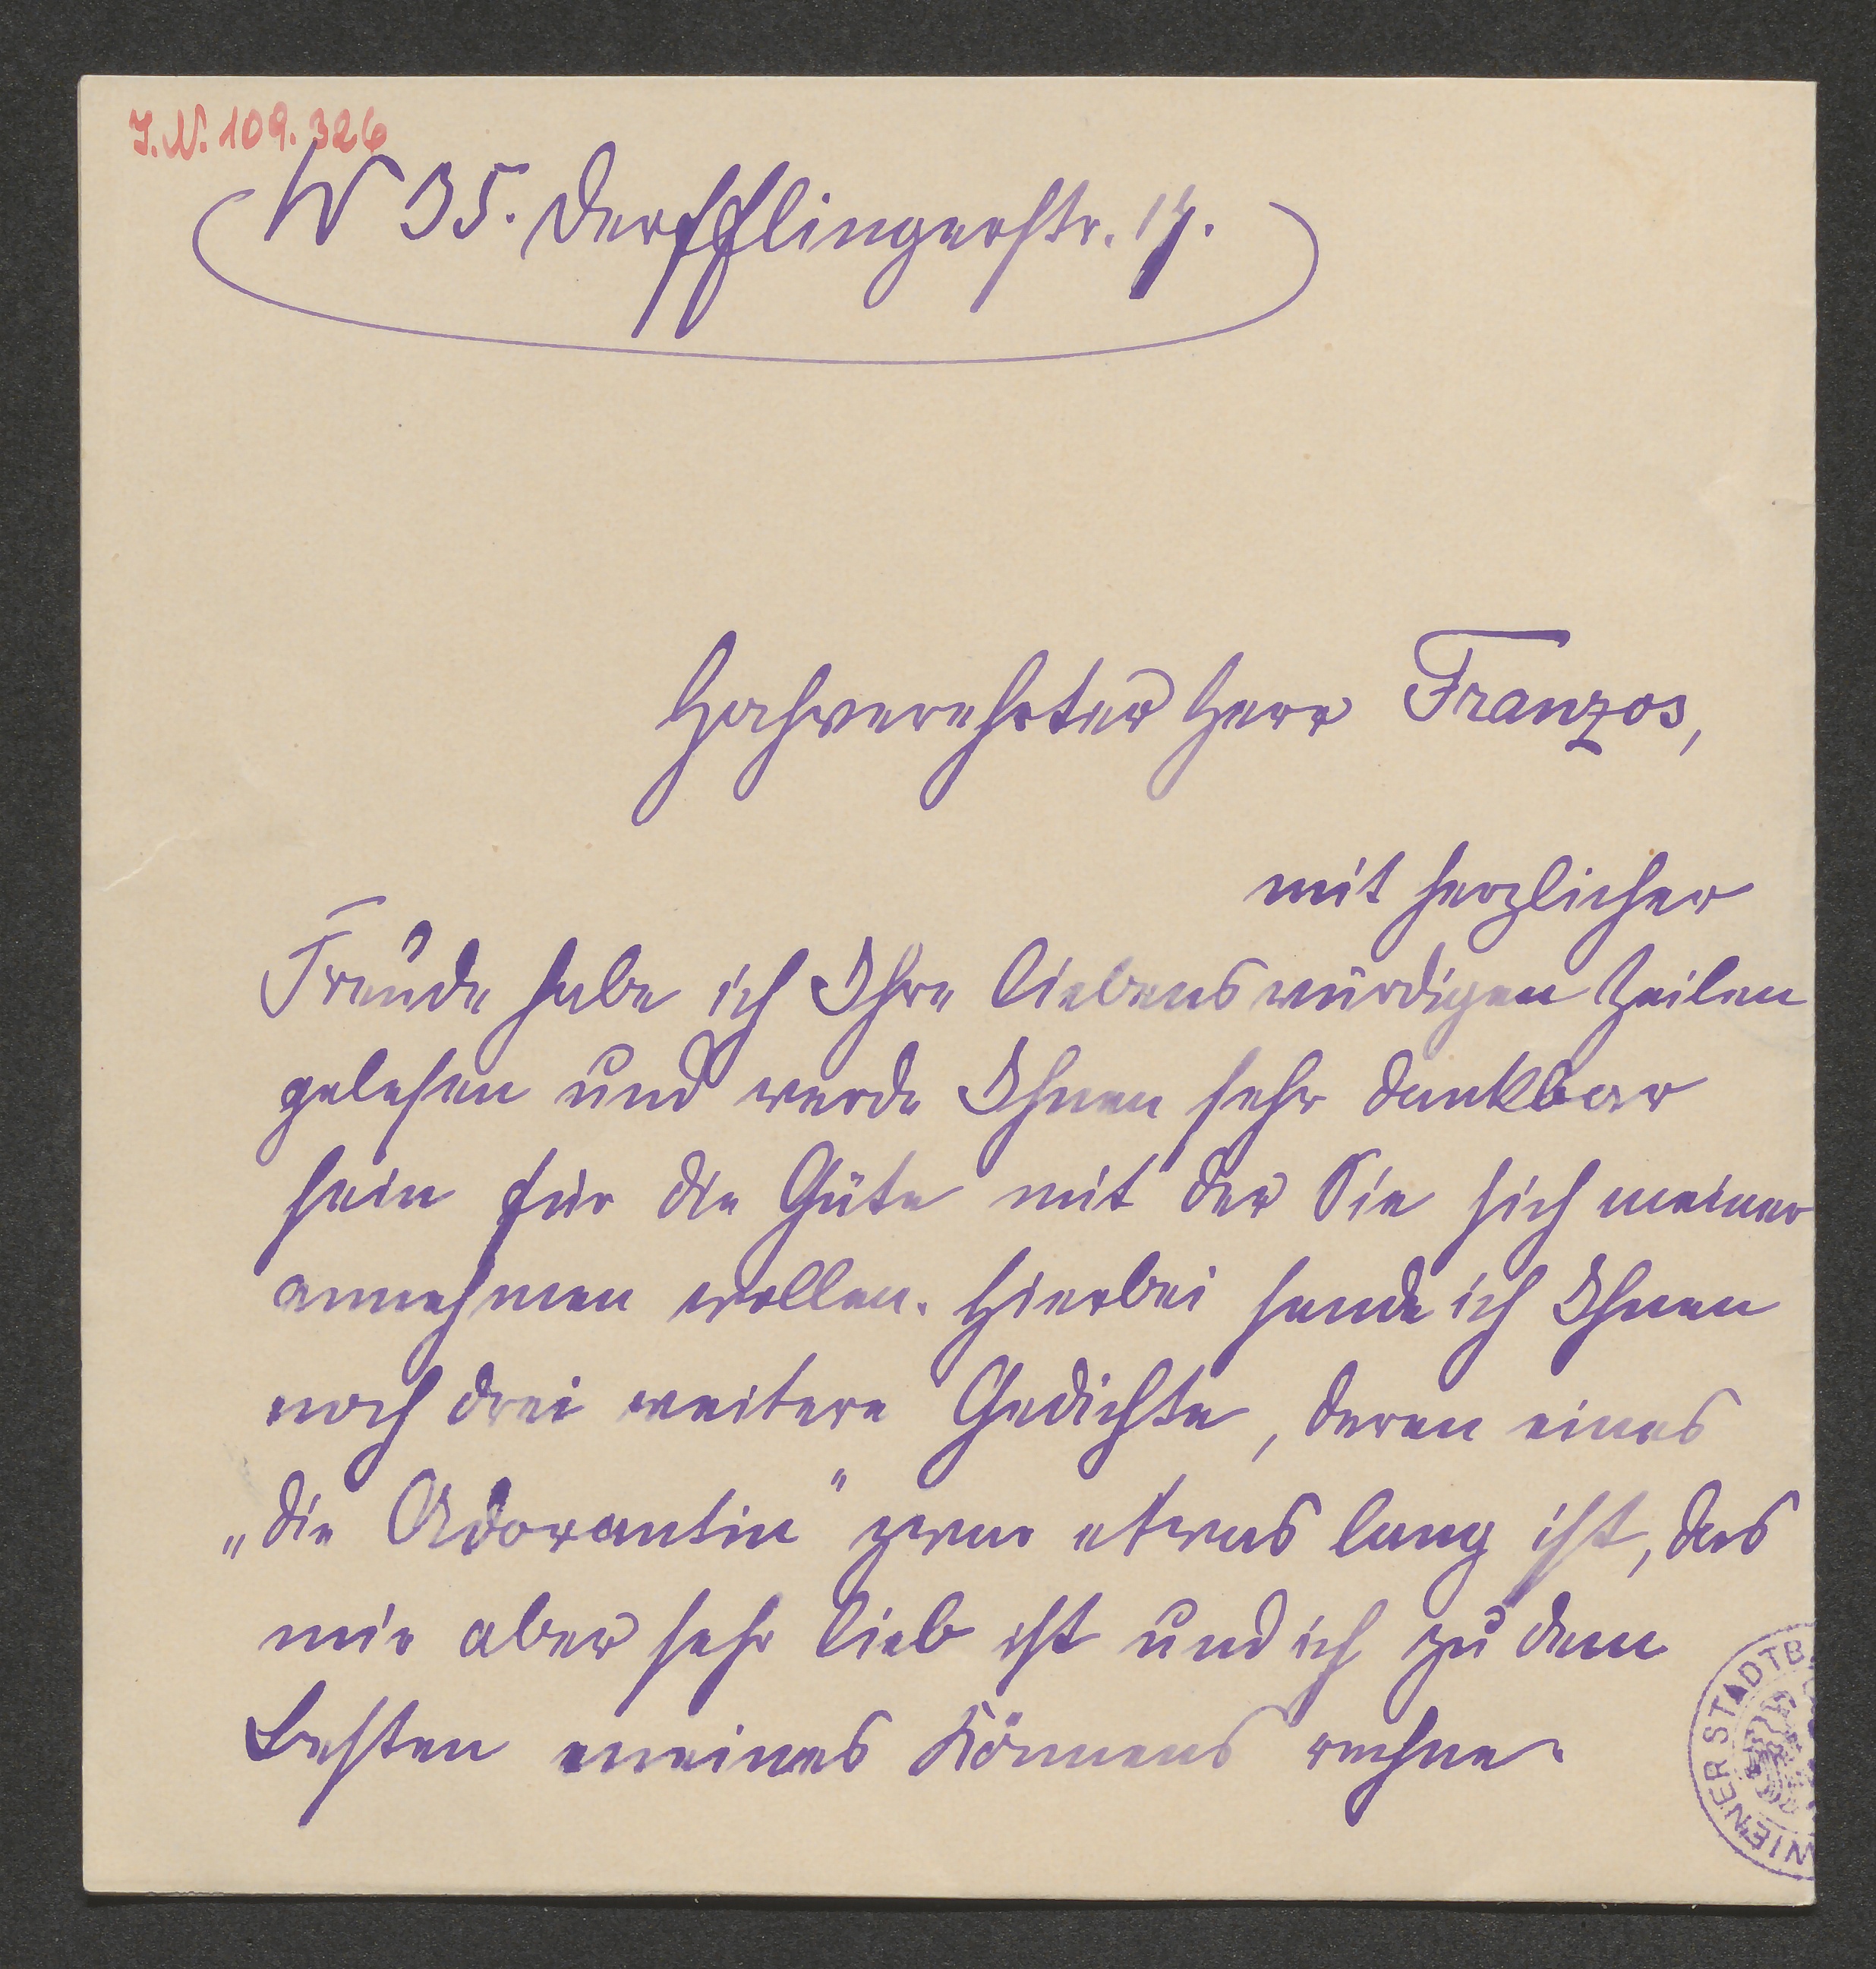 J.N. 109.326
W 35. Derfflingerstr. 17.
Hochverehrter Herr Franzos,
mit herzlicher
Freude habe ich Ihre liebenswürdigen Zeilen
gelesen und werde Ihnen sehr dankbar
sein für die Güte mit der Sie sich meiner
annehmen wollen. Hierbei sende ich Ihnen
noch drei weitere Gedichte, deren eines
„die Adorantin" zwar etwas lang ist, das
mir aber sehr lieb ist und ich zu dem
Besten meines Könnens rechne.
WIENER STADTB